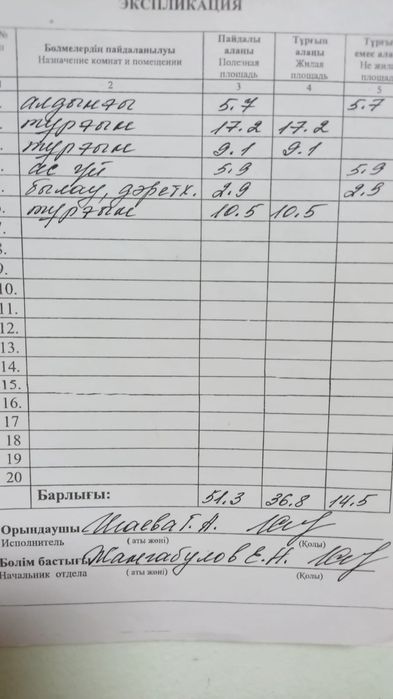 ЭКСПЛИКАЦИЯ
№ Бөлмелердің пайдаланылуы Назначение комнат и помещении Пайдалы алаңы Полезная площадь Тұрғын алаңы Жилая площадь Тұрғы емес ала Не жил площад
1 2 3 4 5
алдыңғы 5.7 5.7
тұрғын 17.2 17.2
тұрғын 9.1 9.1
ас үй 5.9 5.9
былау, дәретх. 2.9 2.9
тұрғын 10.5 10.5
7.
8.
9.
10.
11.
12.
13.
14.
15.
16.
17
18
19
20
Барлығы: 51.3 36.8 14.5
Орындаушы Т. А.
Исполнитель (аты жөні) (Қолы)
Бөлім бастығы Жангабулов Е. Н.
Начальник отдела (аты жөні) (Қолы)